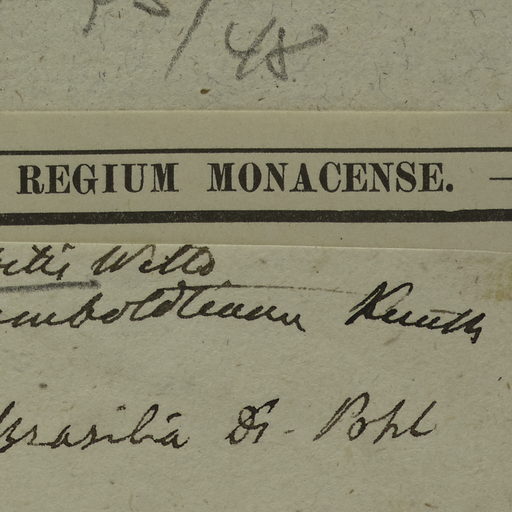 /48
REGIUM MONACENSE.
Willd
umboldtiana Kunth
Brasilia Dr. Pohl